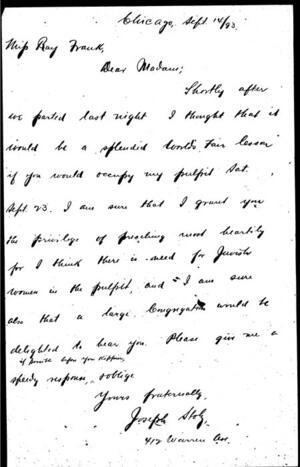 Chicago, Sept. 14/93.
Miss Ray Frank,
Dear Madam;
Shortly after
we parted last night I thought that it
would be a splendid World's Fair lesson
if you would occupy my pulpit Sat.
Sept. 23. I am sure that I grant you
the privilege of preaching most heartily
for I think there is need for Jewish
women in the pulpit, and I am sure
also that a large Congregation would be
delighted to hear you. Please give me a
speedy response, & oblige
Yours fraternally,
Joseph Stolz
412 Warren Ave.